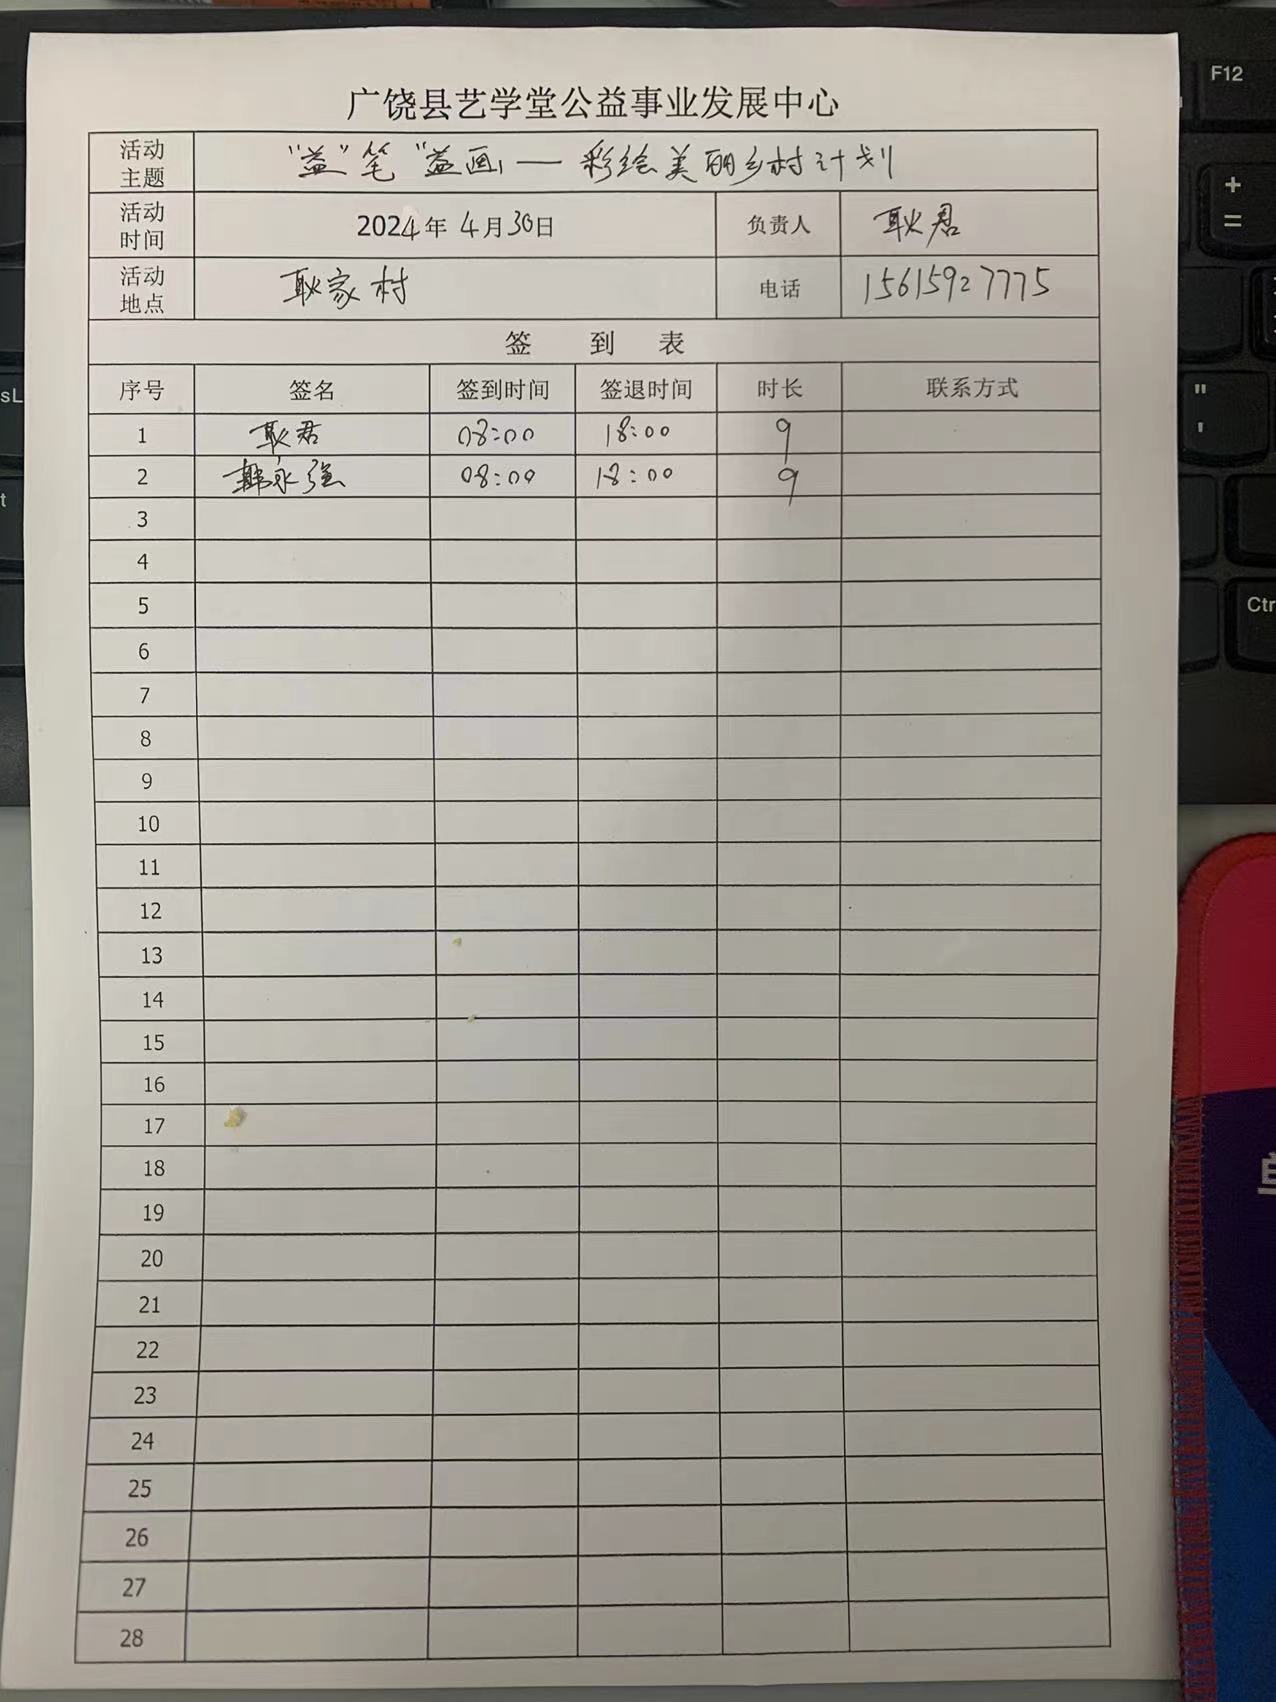 广饶县艺学堂公益事业发展中心
活动主题 "益"笔"益画"—彩绘美丽乡村计划
活动时间 2024年 4月30日 负责人 耿君
活动地点 耿家村 电话 15615927775
签 到 表
序号 签名 签到时间 签退时间 时长 联系方式
1 耿君 08:00 18:00 9
2 韩永强 08:00 18:00 9
3
4
5
6
7
8
9
10
11
12
13
14
15
16
17
18
19
20
21
22
23
24
25
26
27
28
F12
+
=
"
'
Ctr
sL
t